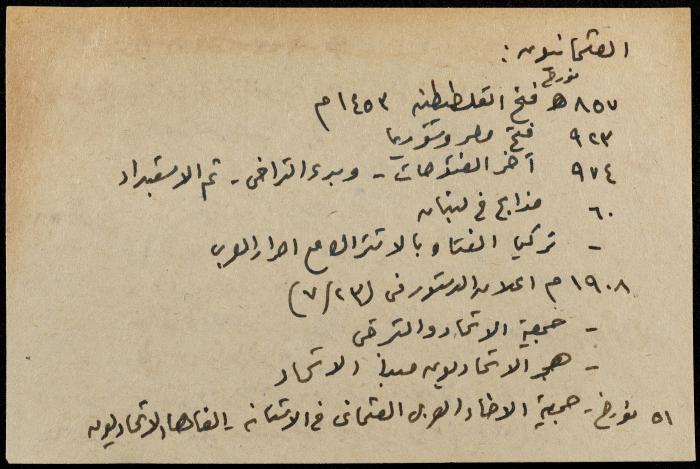 العثمانيون :
نورخ
٨٥٧ هـ فتح القسطنطينية ١٤٥٣ م
٩٢٣ فتح مصر وسوريا
٩٧٤ آخر الفتوحات - وبدء التراخي - ثم الاستبداد
٦٠ مذابح في لبنان
- تركيا الفتاة بالاشتراك مع احرار العرب
١٩٠٨ م اعلان الدستور في (٧/٢٣)
- جمعية الاتحاد والترقي
- هجر الاتحاديون مبدأ الاتحاد
٥١ نورخ - جمعية الاخاء العربي العثماني في الاستانة - الغاها الاتحاديون